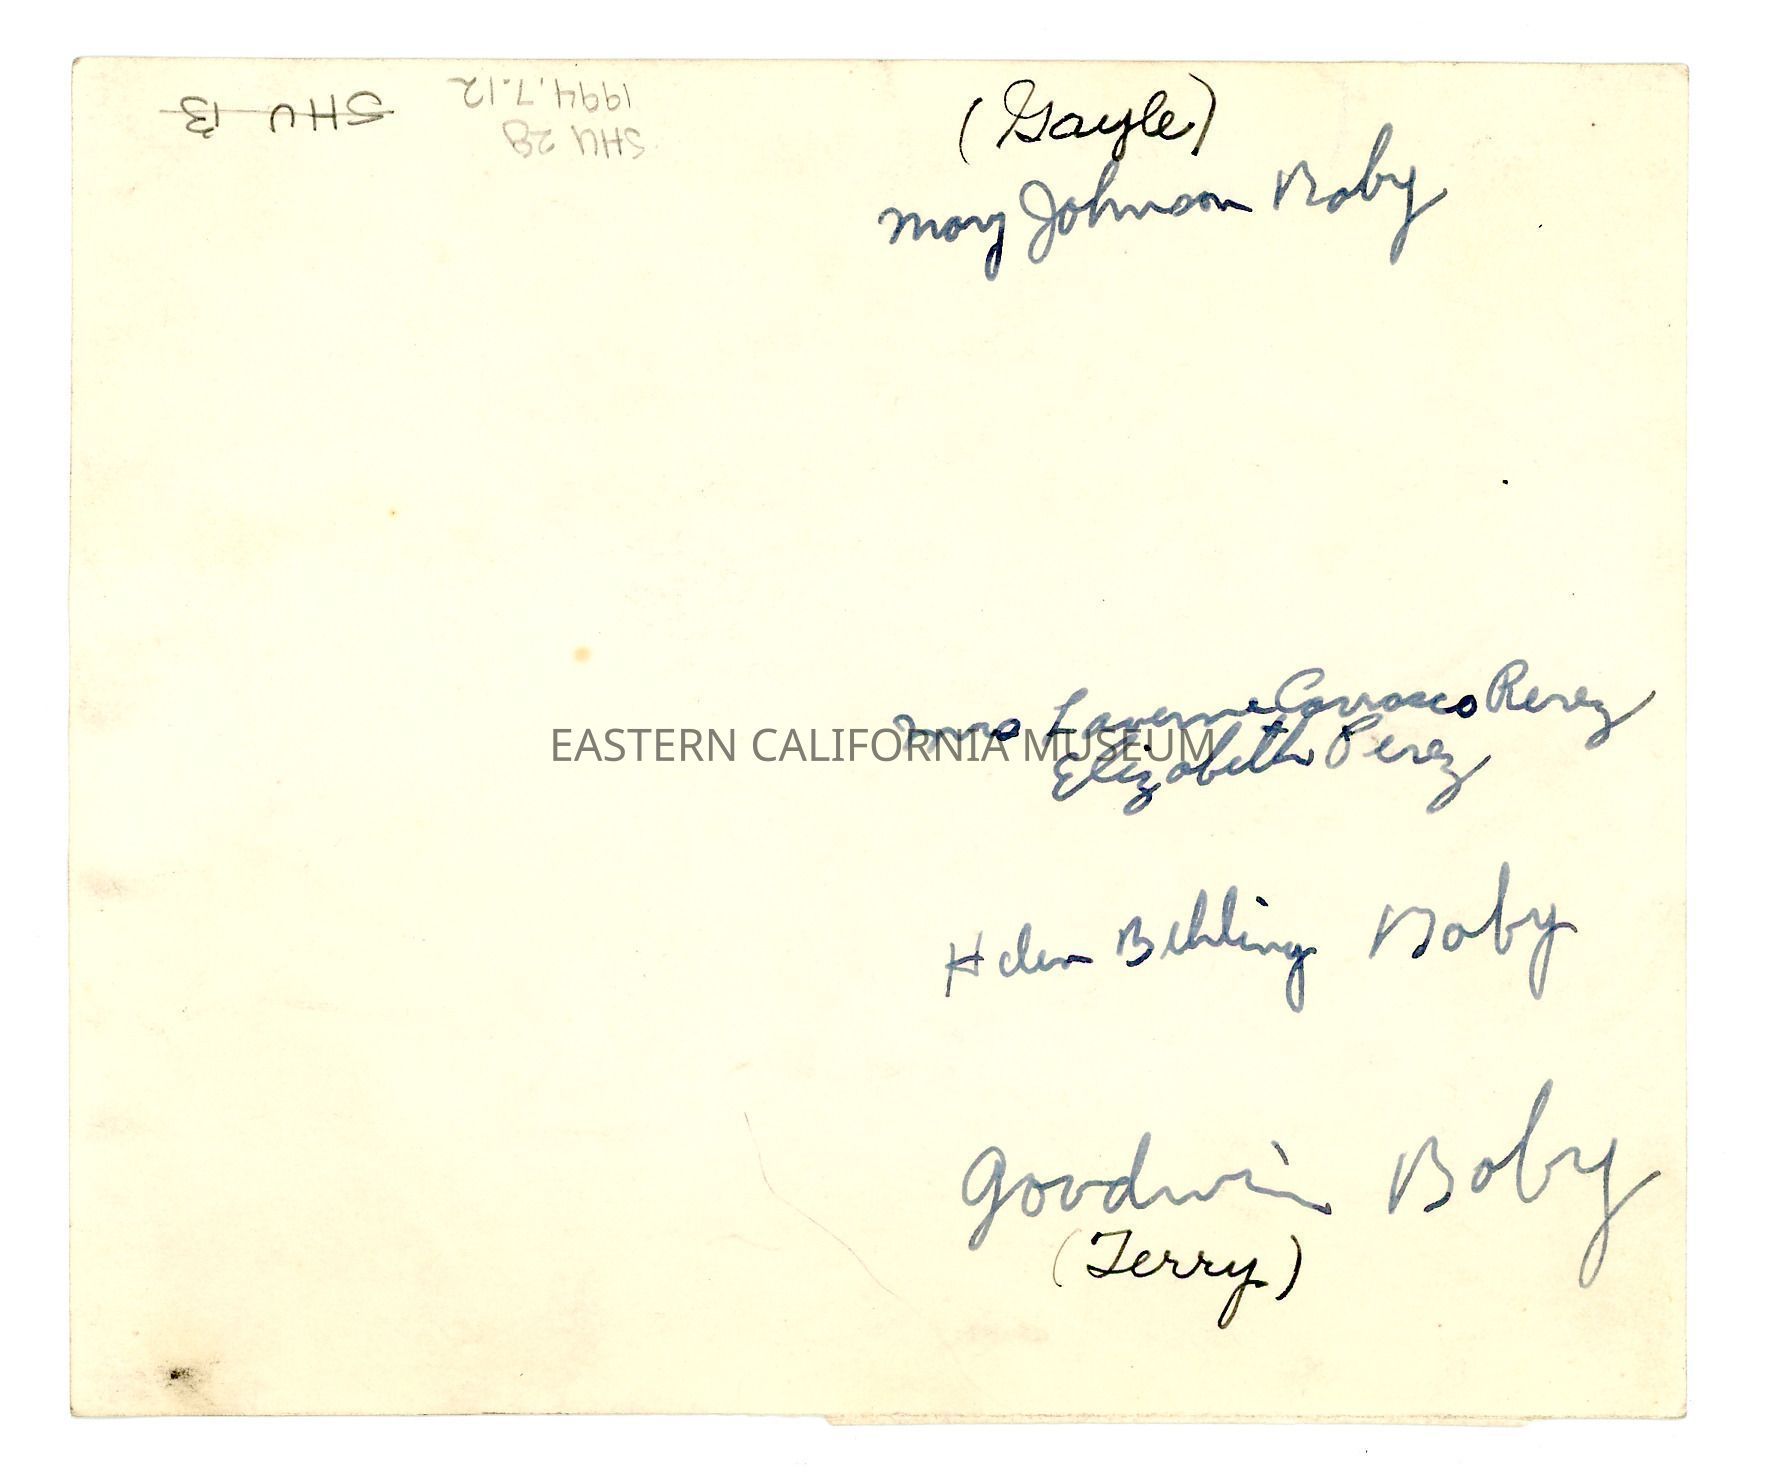 SHU 13
1994.7.12
SHU 28
(Gayle)
Mary Johnson Baby
Mrs Laverne Carrasco Perez
Elizabeth Perez
EASTERN CALIFORNIA MUSEUM
Helen Behling Baby
Goodwin Baby
(Terry)